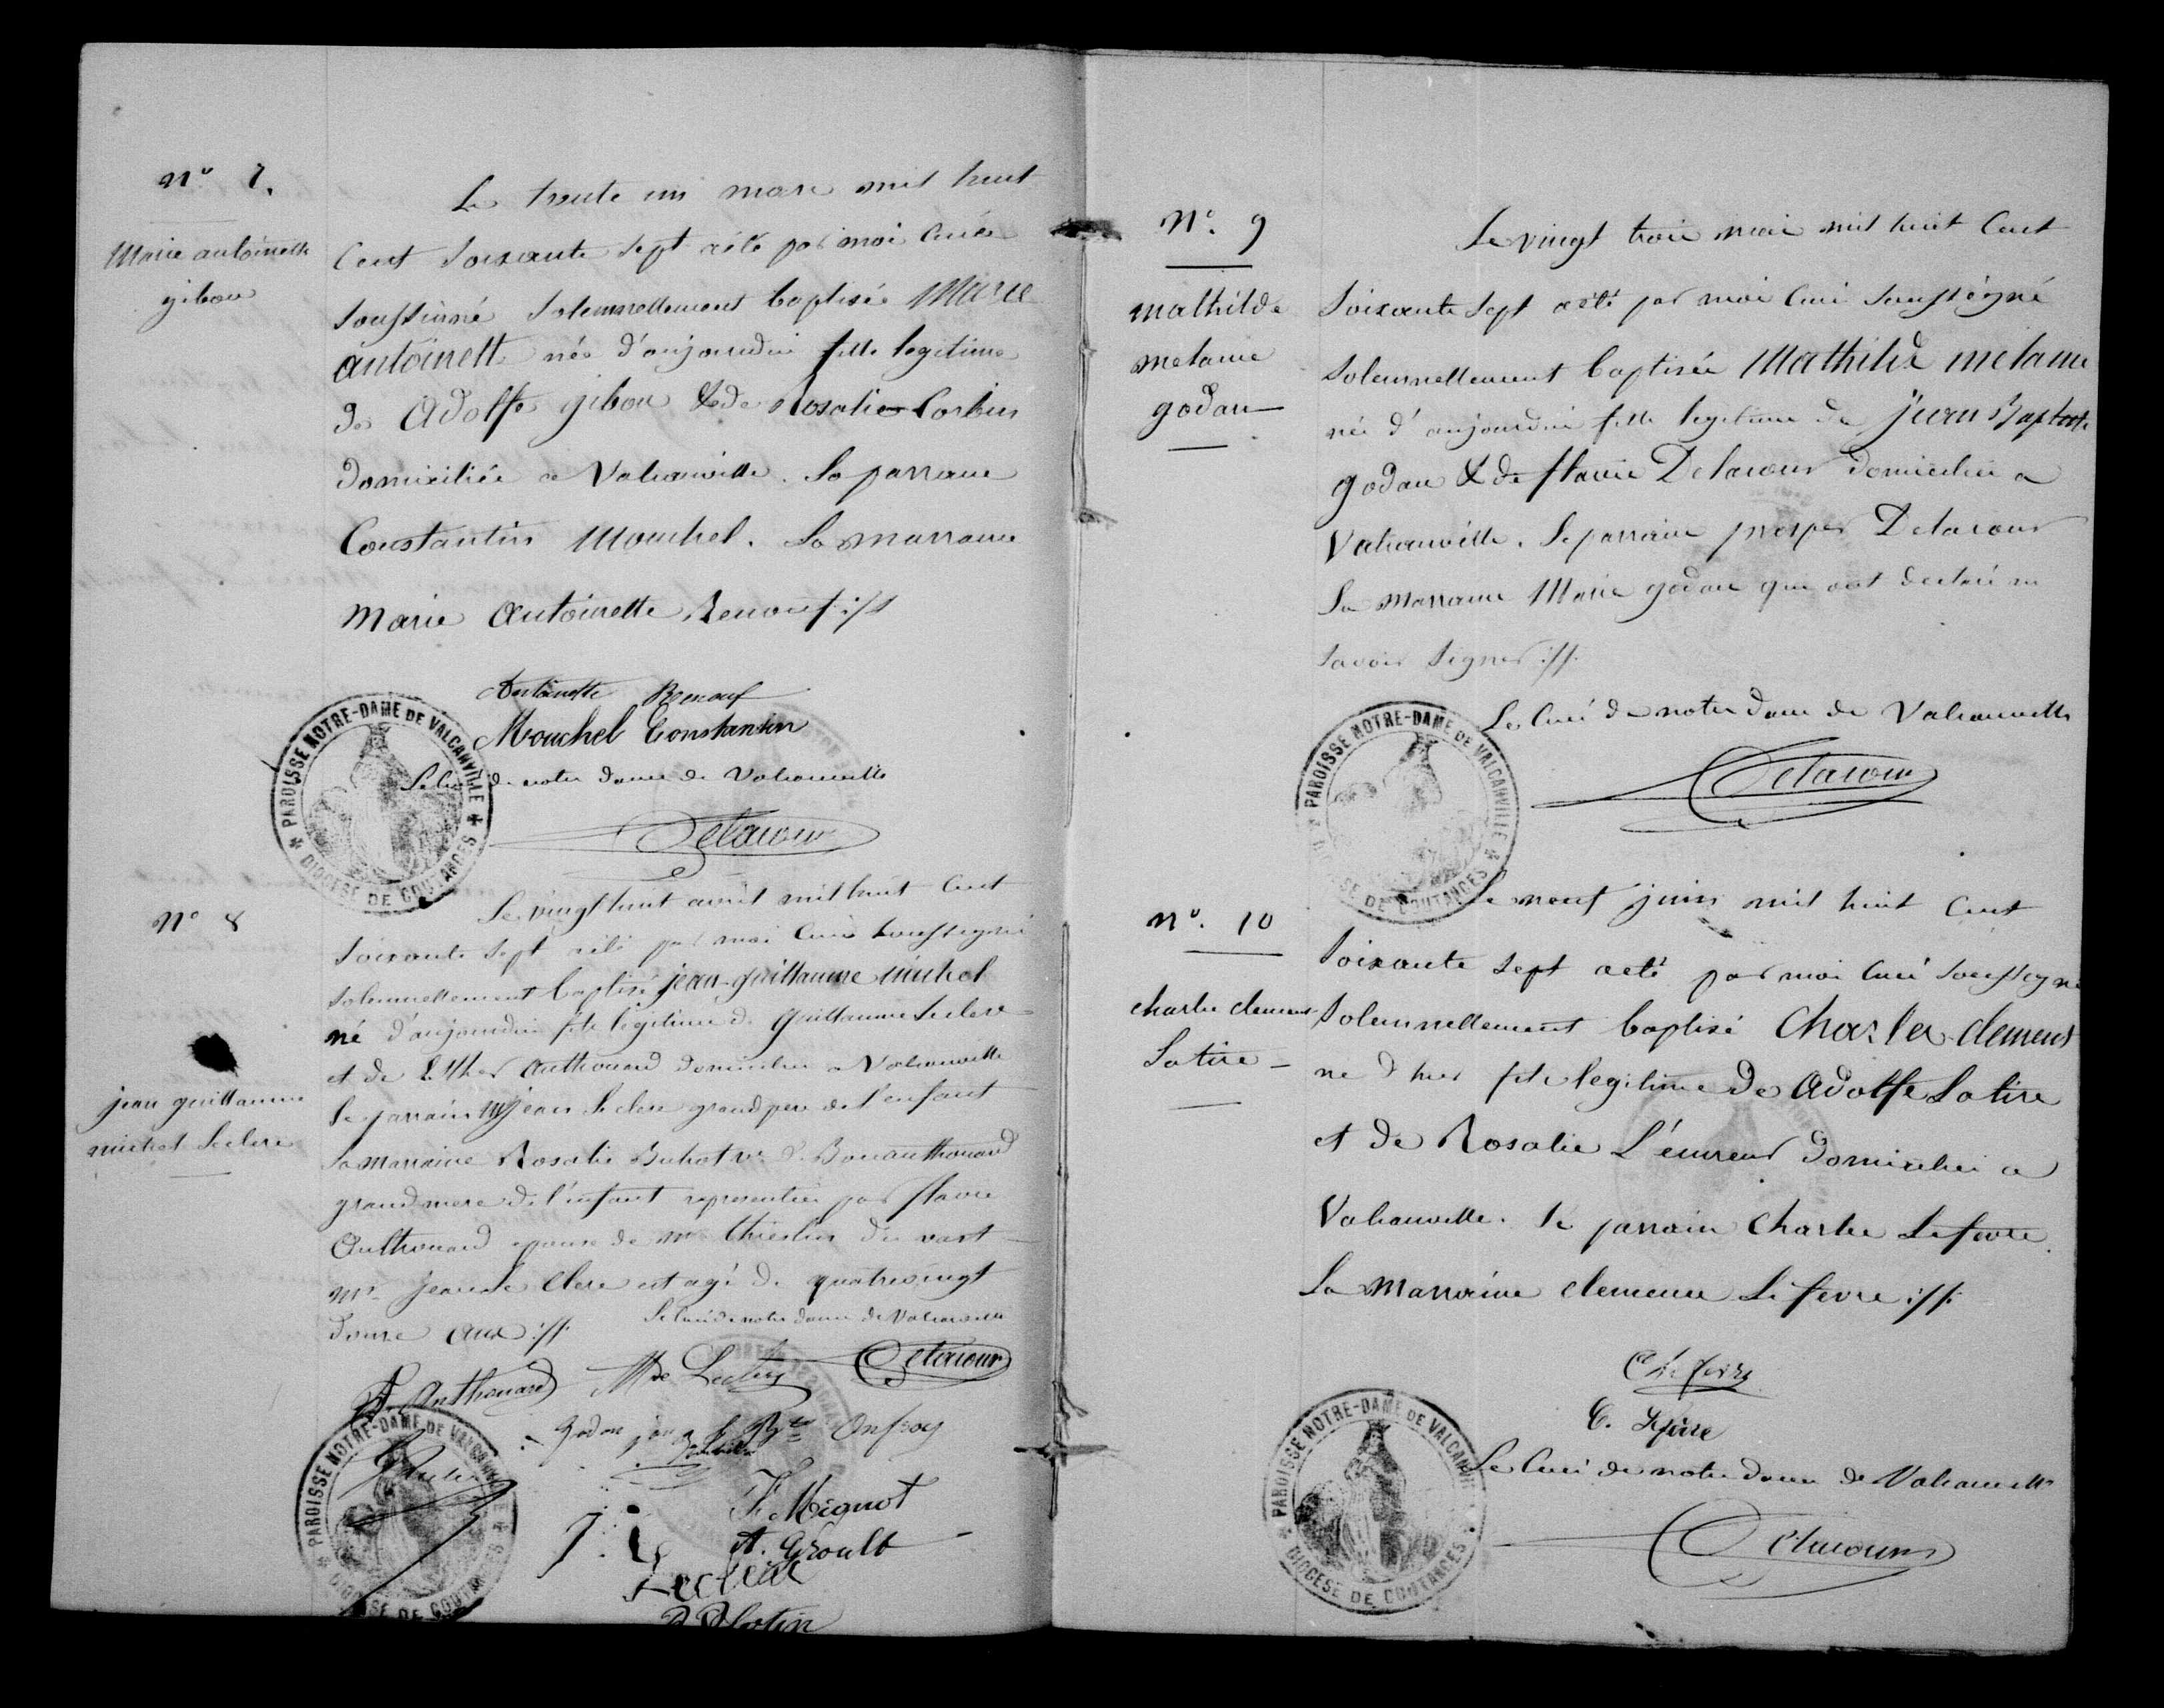 N° 7.
Marie antoinette
gibon
Le trente un mars mil huit
Cent soixante sept a été par moi Curé
soussinné solennellement baptisée Marie
antoinett née d'aujourdui fille legitime
de Adolfe gibon & de Rosalie Corbin
domiciliée a Valcanville. Le parrain
Constantin Mouchel. La marraine
Marie Antoinette Renouf ://
Antoinette Renouf
Mouchel Constantin
Le Curé de notre dame de Valcanville
Delacour
PAROISSE NOTRE-DAME DE VALCANVILLE
DIOCESE DE COUTANCES
N° 8
jean guillaume
michel Leclerc
Le vingt huit avril mil huit Cent
soixante sept a été par moi Curé soussigné
solennellement baptisé jean-guillaume michel
né d'aujourdui fils légitime de Guillaume Leclerc
et de Esther Anthouard domiciliés a Valcanville
le parrain Mr jean Leclerc grand pere de l'enfant
la marraine Rosalie Buhot ve de Bon anthouard
grand mere de l'enfant representée par flavie
Anthouard epouse de mr du vast
mr jean Le Clerc est agé de quatrevingt
douze ans ://
Le Curé de notre dame de Valcanville
Delacour
Anthouard
Onfroy
F. Mignot
A. Groult
Leclerc
PAROISSE NOTRE-DAME DE VALCANVILLE
DIOCESE DE COUTANCES
N°. 9
mathilde
melanie
godan
Le vingt trois mai mil huit Cent
soixante sept a été par moi Curé soussigné
solennellement baptisée Mathilde melanie
née d'aujourdui fille legitime de jean Baptiste
godan & de flavie Delacour domiciliés a
Valcanville. Le parrain prosper Delacour
La marraine Marie godan qui ont declaré ne
savoir signer ://.
Le Curé de notre dame de Valcanville
Delacour
PAROISSE NOTRE-DAME DE VALCANVILLE
DIOCESE DE COUTANCES
N°. 10
charles clement
Latire
Le neuf juin mil huit Cent
soixante sept a été par moi Curé soussigné
solennellement baptisé Charles clement
né d'hier fils legitime de Adolfe Latire
et de Rosalie domiciliés a
Valcanville. le parrain Charles Lefevre.
La marraine clemence Lefevre ://.
C. Lefevre
Le Curé de notre dame de Valcanville
Delacour
PAROISSE NOTRE-DAME DE VALCANVILLE
DIOCESE DE COUTANCES